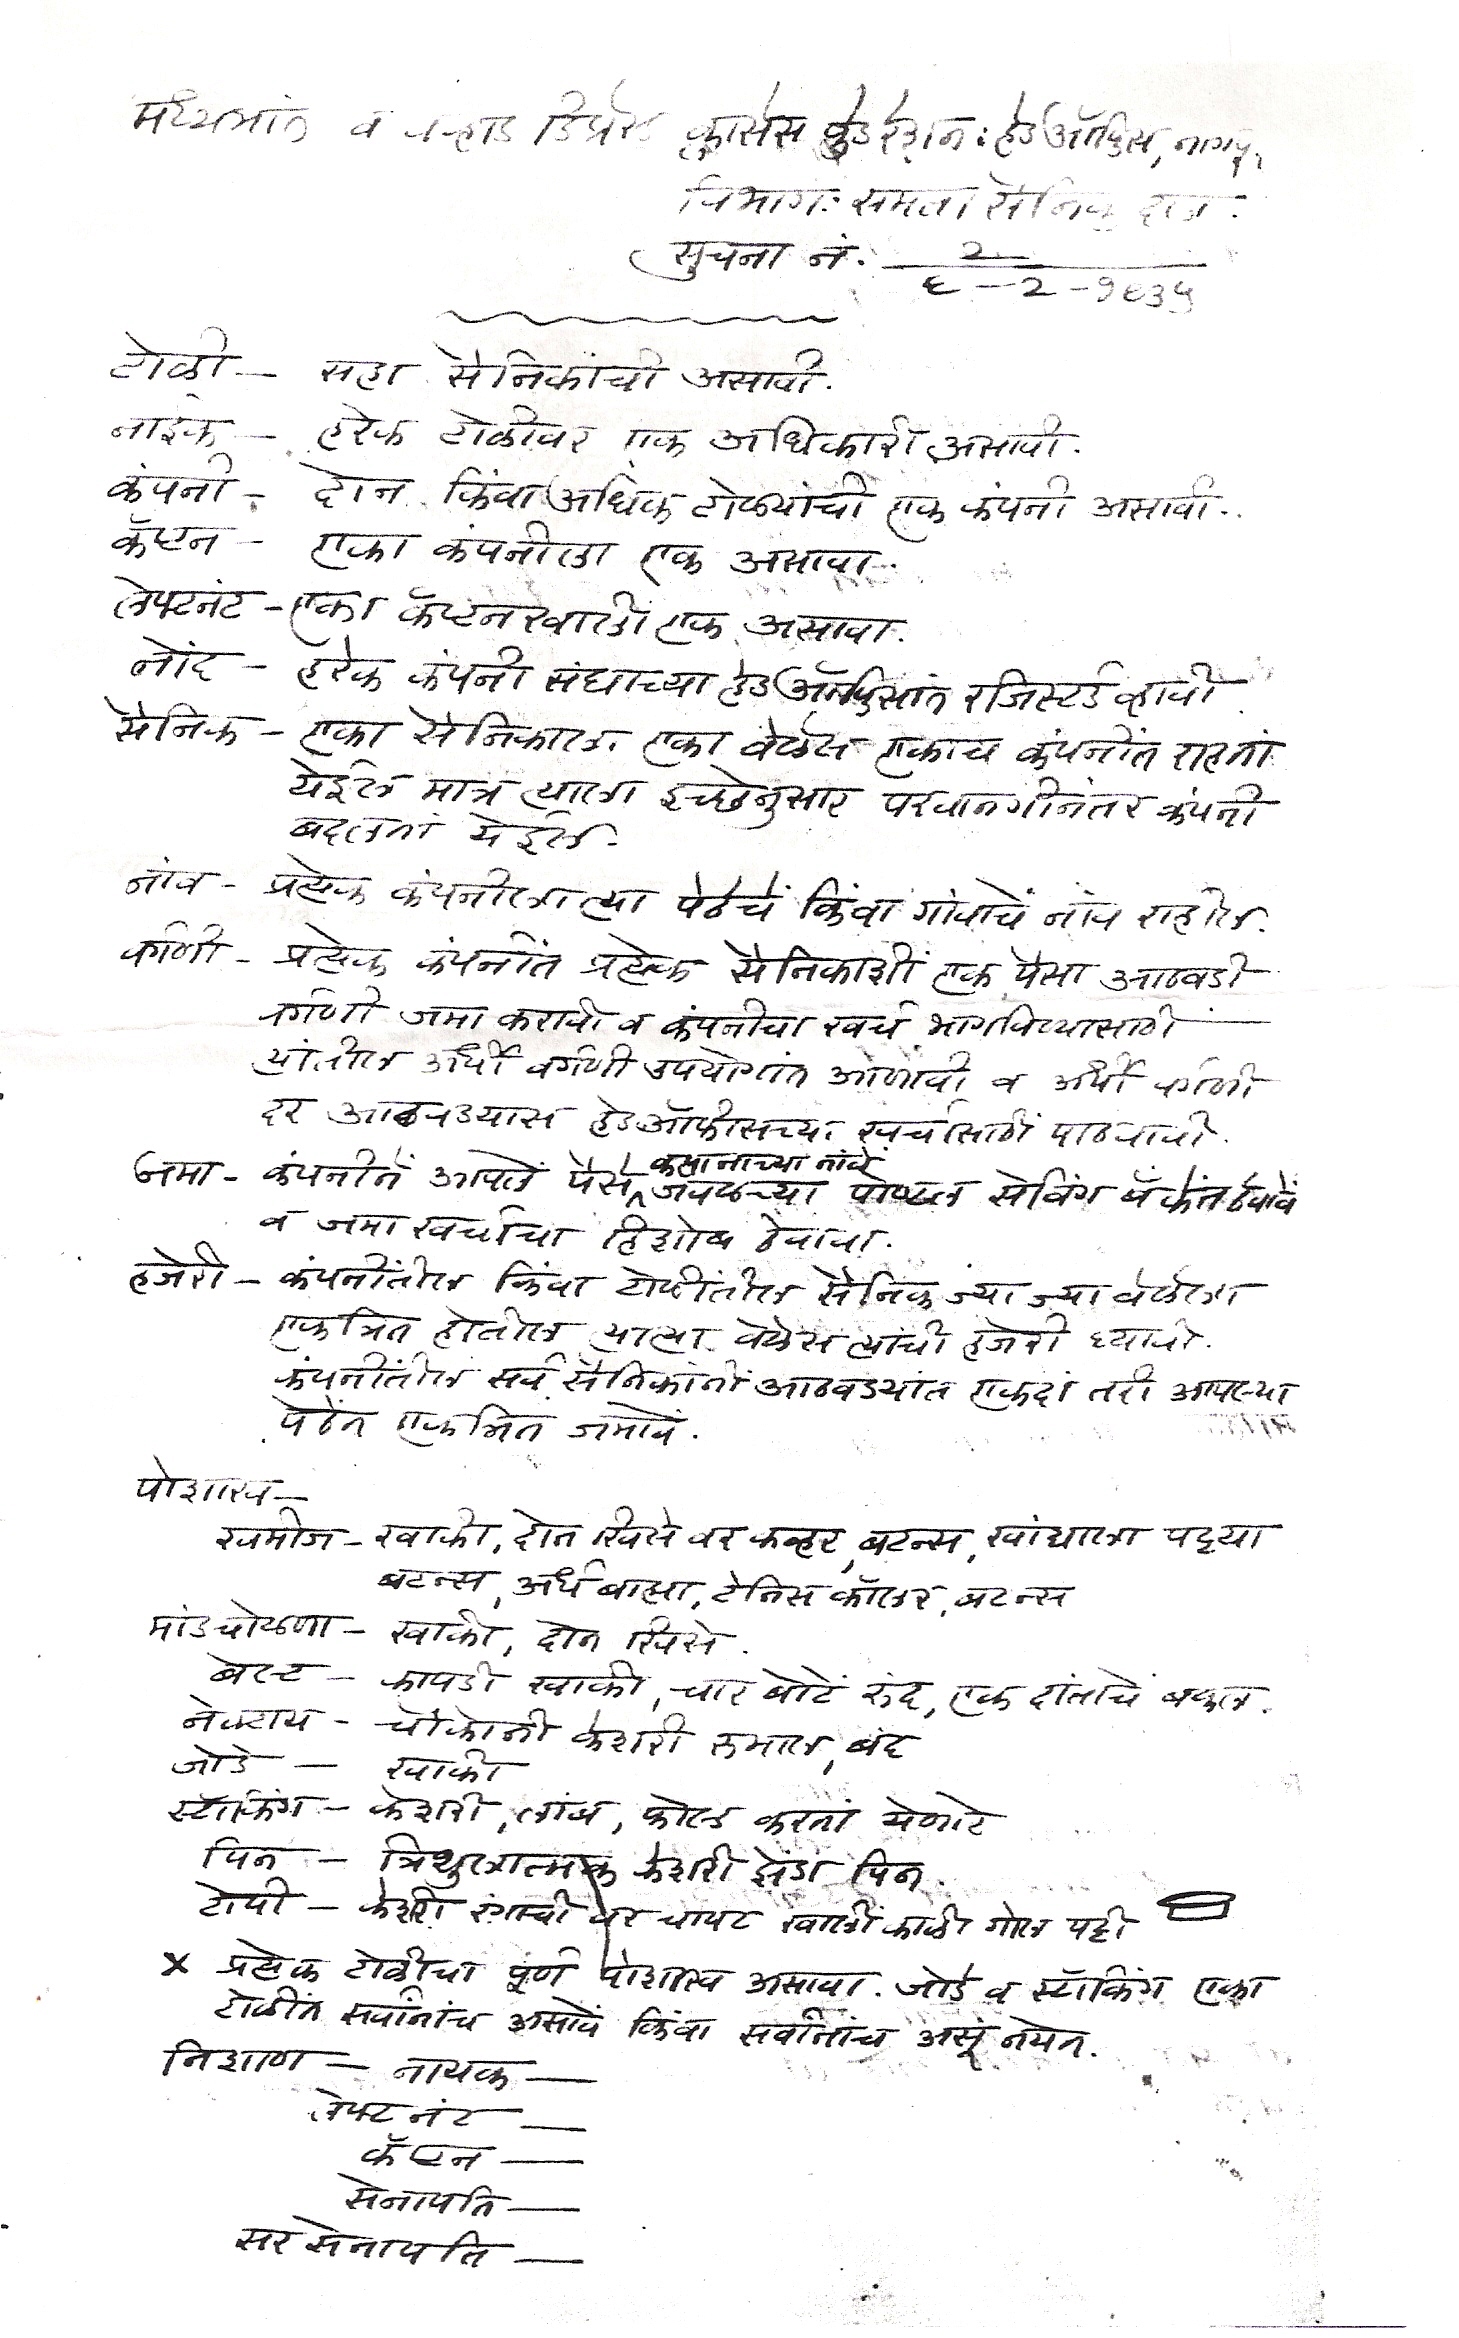 मध्यप्रांत व वऱ्हाड डिप्रेस्ड क्लासेस फेडरेशन: हेड ऑफिस, नागपूर
विभाग: समता सैनिक दल.
सूचना नं. २
६-२-१९३५
टोळी — सहा सैनिकांची असावी.
नाईक — हरेक टोळीवर एक अधिकारी असावी.
कंपनी - दोन किंवा अधिक टोळ्यांची एक कंपनी असावी.
कॅप्टन - एका कंपनीला एक असावा.
लेफ्टनंट - एका कॅप्टनखाली एक असावा.
नोंद - हरेक कंपनी संघाच्या हेड ऑफिसांत रजिस्टर्ड व्हावी
सैनिक - एका सैनिकाला एका वेळेस एकाच कंपनींत राहतां
येईल मात्र त्याला इच्छेनुसार परवानगीनंतर कंपनी
बदलतां येईल.
नांव - प्रत्येक कंपनीला त्या पेठेचें किंवा गांवाचें नांव राहील.
वर्गणी - प्रत्येक कंपनींत प्रत्येक सैनिकाशीं एक पैसा आठवडी
वर्गणी जमा करावी व कंपनीचा खर्च भागविण्यासाठी
यांतील अर्धी वर्गणी उपयोगांत आणावी व अर्धी वर्गणी
दर आठवड्यास हेड ऑफीसच्या खर्चासाठीं पाठवावी.
जमा - कंपनीनें आपले पैसे कप्तानाच्या नांवें जवळच्या पोष्टल सेविंग बँकेंत ठेवावें
व जमा खर्चाचा हिशोब ठेवावा.
हजेरी - कंपनींतील किंवा टोळींतील सैनिक ज्या ज्या वेळेला
एकत्रित होतील त्या त्या वेळेस त्यांची हजेरी घ्यावी.
कंपनींतील सर्व सैनिकांनीं आठवड्यांत एकदां तरी आपल्या
पेठेंत एकत्रित जमावें.
पोशाख —
खमीज - खाकी, दोन खिसे वर कव्हर, बटन्स, खांद्याला पट्ट्या
बटन्स, अर्ध बाह्या, टेनिस कॉलर, बटन्स
मांडचोळणा - खाकी, दोन खिसे.
बेल्ट - कापडी खाकी, चार बोटें रुंद, एक दांताचें बक्कल.
नेकटाय - चौकोनी केशरी रुमाल, बंद
जोडे — खाकी
स्टॉकिंग - केशरी, लांब, फोल्ड करतां येणारे
पिन - त्रिशुलात्मक केशरी झेंडा पिन.
टोपी - केशरी रंगाची वर चापट खालीं काळी गोल पट्टी
x प्रत्येक टोळीचा पूर्ण पोशाख असावा. जोडे व स्टॉकिंग एका
टोळींत सर्वांनांच असावें किंवा सर्वांनांच असूं नयेत.
निशाण — नायक —
लेफ्टनंट —
कॅप्टन —
सेनापति —
सर सेनापति —